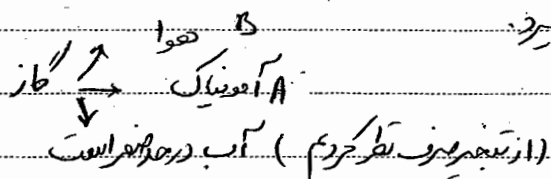 برد.
هوا B
گاز → آمونیاک A
(از تبخیر صرف نظر کردیم) آب در حد صفر است